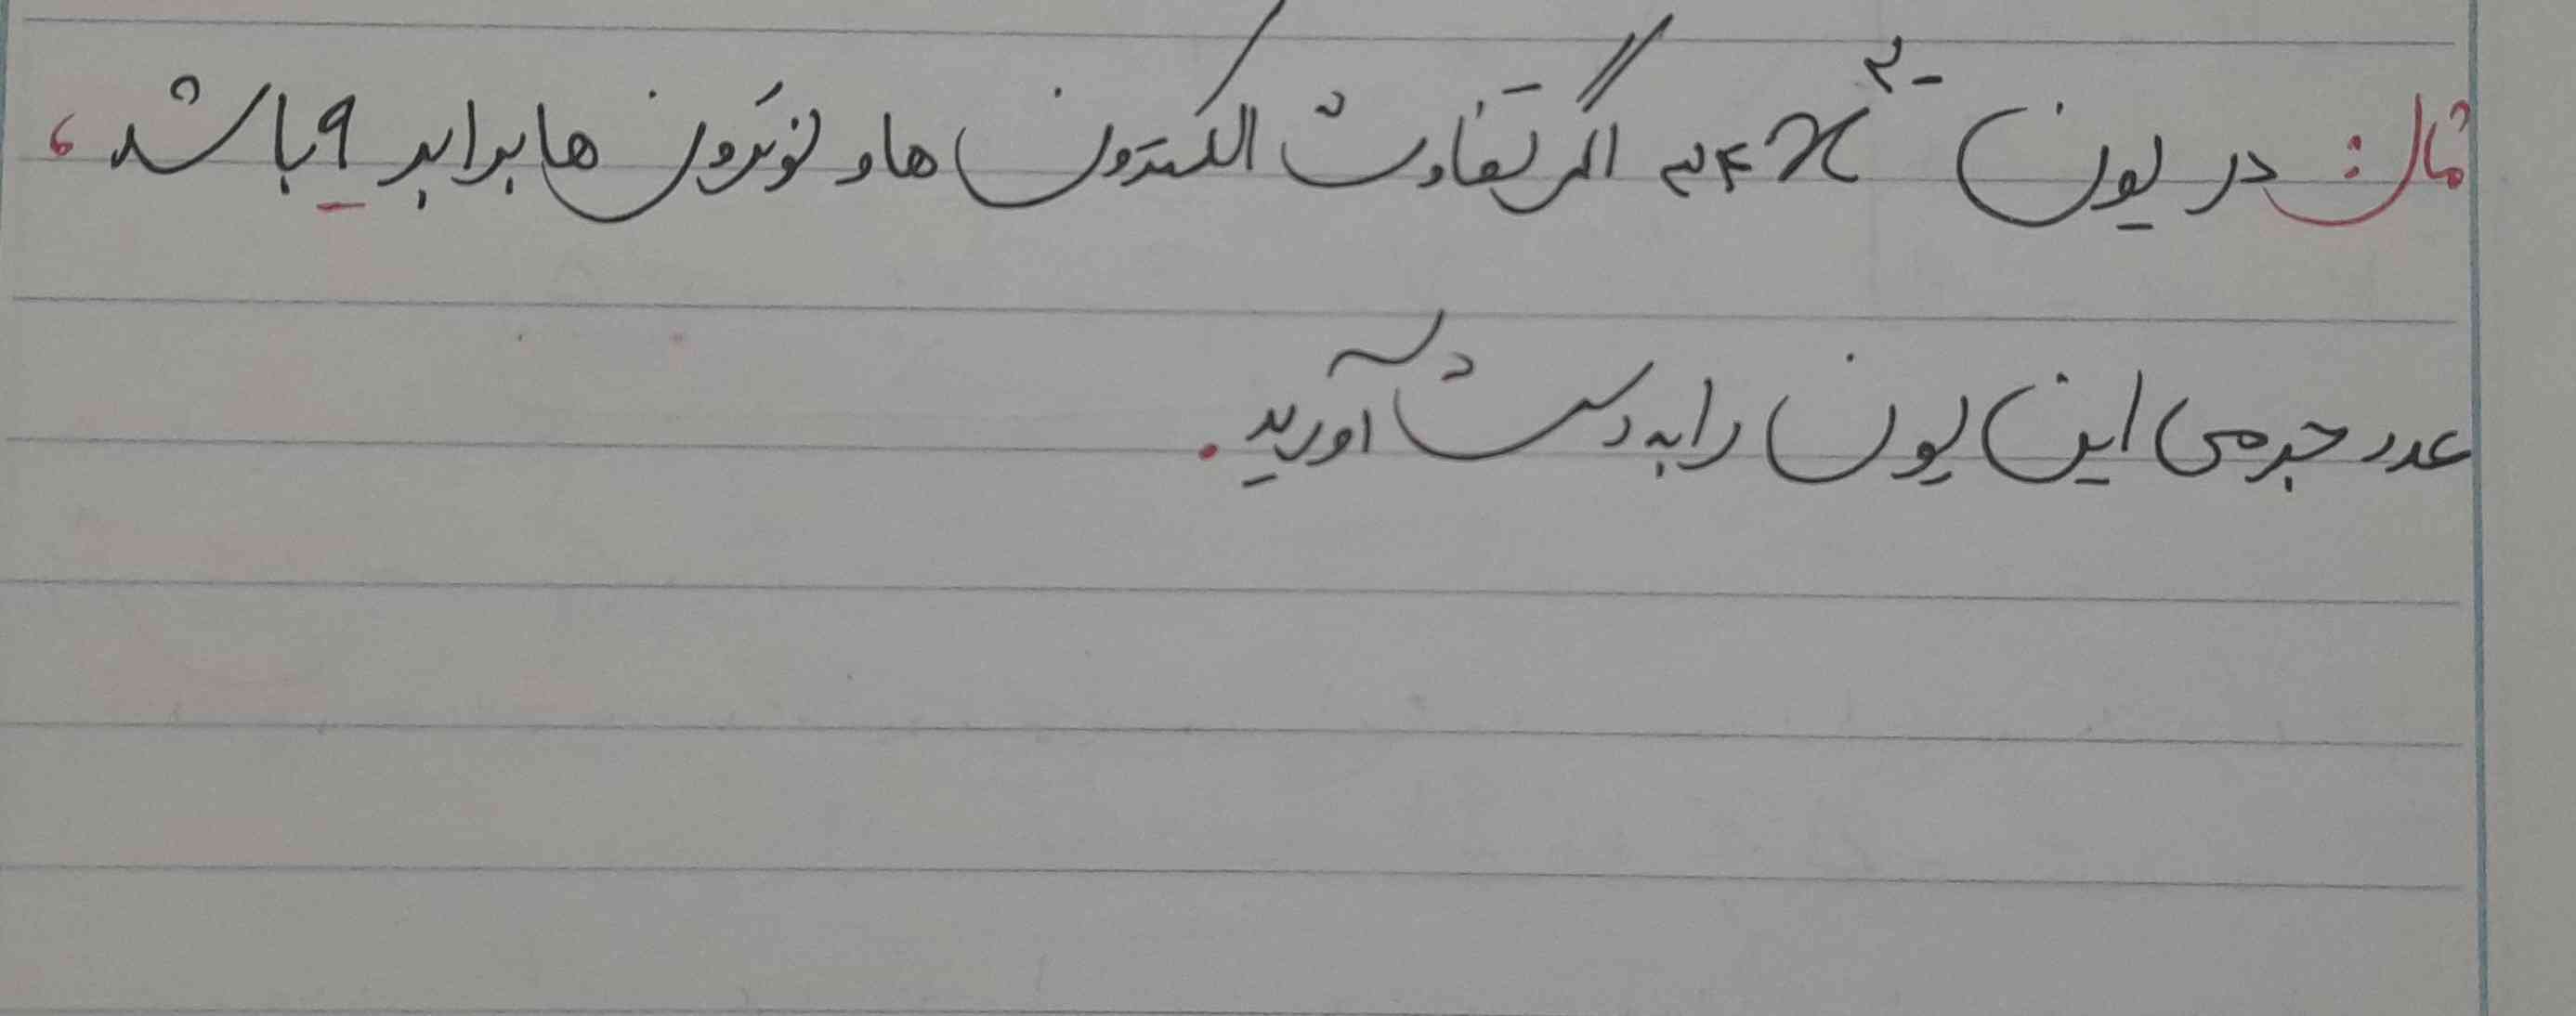 مثال: در یون ۳۴X²⁻ اگر تفاوت الکترون ها و نوترون ها برابر ۹ باشد،
عدد جرمی این یون را به دست آورید.